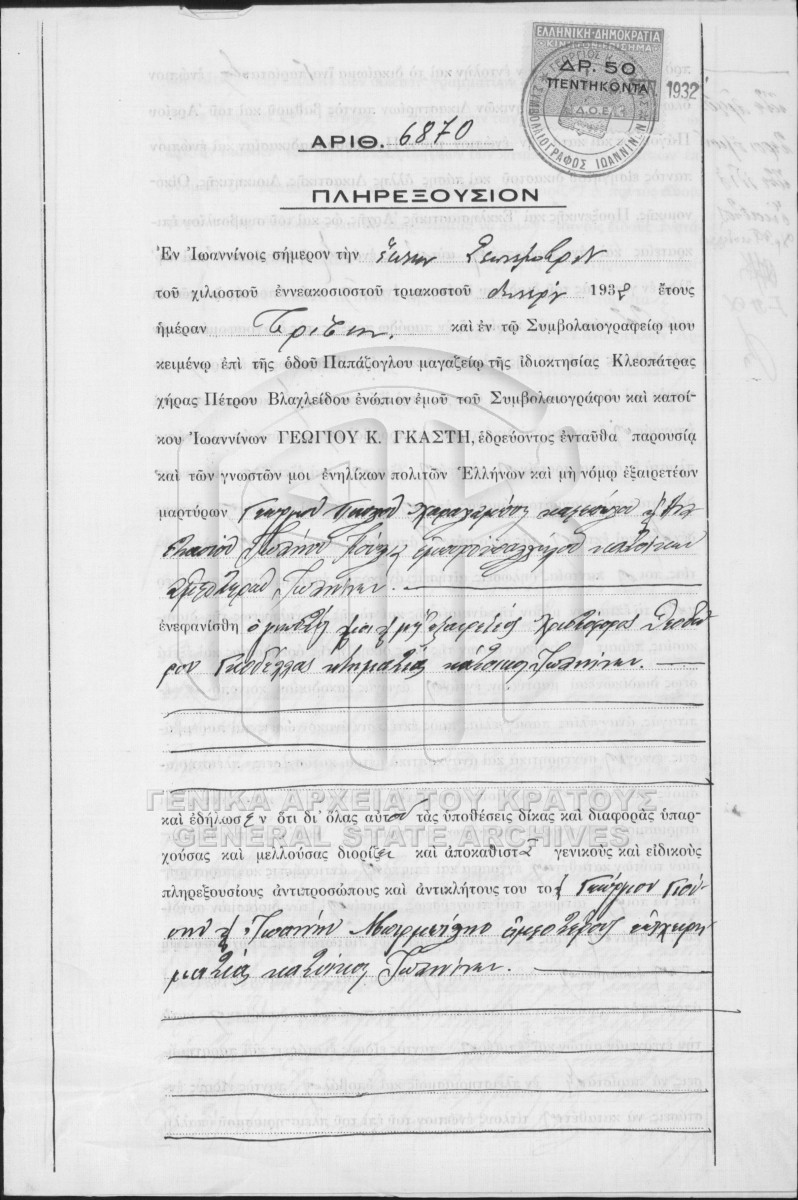 ΕΛΛΗΝΙΚΗ·ΔΗΜΟΚΡΑΤΙΑ
ΔΡ. 50
ΠΕΝΤΗΚΟΝΤΑ
1932
Δ.Ο.Ε
ΣΥΜΒΟΛΑΙΟΓΡΑΦΟΣ ΙΩΑΝΝΙΝ
ΑΡΙΘ. 6870
ΠΛΗΡΕΞΟΥΣΙΟΝ
Ἐν Ἰωαννίνοις σήμερον τὴν ἕκτην Σεπτεμβρίου
τοῦ χιλιοστοῦ ἐννεακοσιοστοῦ τριακοστοῦ δευτέρου 1932 ἔτους
ἡμέραν Τρίτην. καὶ ἐν τῷ Συμβολαιογραφείῳ μου
κειμένῳ ἐπὶ τῆς ὁδοῦ Παπάζογλου μαγαζείῳ τῆς ἰδιοκτησίας Κλεοπάτρας
χήρας Πέτρου Βλαχλείδου ἐνώπιον ἐμοῦ τοῦ Συμβολαιογράφου καὶ κατοί-
κου Ἰωαννίνων ΓΕΩΓΙΟΥ Κ. ΓΚΑΣΤΗ, ἑδρεύοντος ἐνταῦθα παρουσίᾳ
καὶ τῶν γνωστῶν μοι ἐνηλίκων πολιτῶν Ἑλλήνων καὶ μὴ νόμῳ ἐξαιρετέων
μαρτύρων Γεωργίου
ἐμποροϋπαλλήλου κατοίκων
ἀμφοτέρων Ἰωαννίνων.
ἐνεφανίσθη ὁ γνωστός μοι καὶ μὴ ἐξαιρετέος Χριστόφορος Θεοδώ
ρου κτηματίας κάτοικος Ἰωαννίνων.
ΓΕΝΙΚΑ ΑΡΧΕΙΑ ΤΟΥ ΚΡΑΤΟΥΣ
GENERAL STATE ARCHIVES
καὶ ἐδήλωσεν ὅτι δι᾽ ὅλας αὐτοῦ τὰς ὑποθέσεις δίκας καὶ διαφορὰς ὑπαρ-
χούσας καὶ μελλούσας διορίζει καὶ ἀποκαθιστᾷ γενικοὺς καὶ εἰδικοὺς
πληρεξουσίους ἀντιπροσώπους καὶ ἀντικλήτους του τοὺς Γεώργιον
καὶ Ἰωάννην ἀμφοτέρους
κατοίκους Ἰωαννίνων.